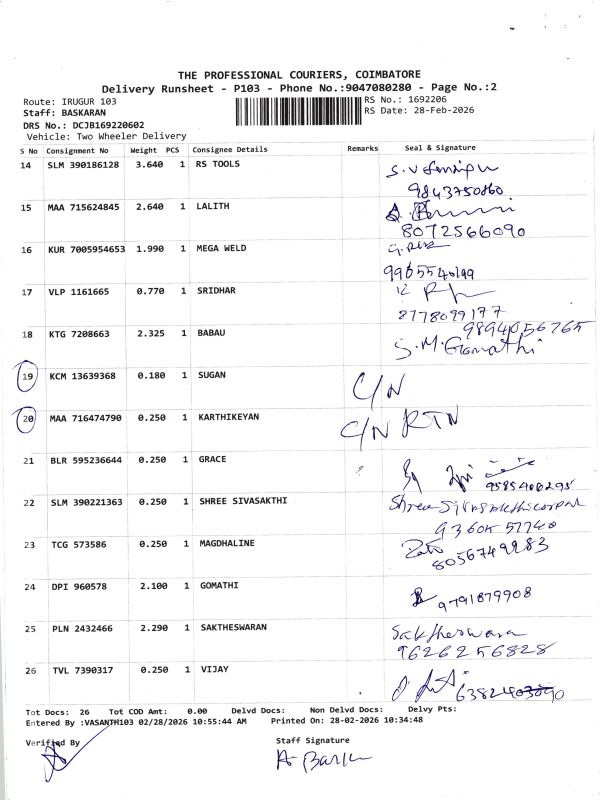 THE PROFESSIONAL COURIERS, COIMBATORE
Delivery Runsheet - P103 - Phone No.:9047080280 - Page No.:2
Route: IRUGUR 103
RS No.: 1692206
Staff: BASKARAN
RS Date: 28-Feb-2026
DRS No.: DCJB169220602
Vehicle: Two Wheeler Delivery
S No Consignment No Weight PCS Consignee Details Remarks Seal & Signature
14 SLM 390186128 3.640 1 RS TOOLS
9843750860
15 MAA 715624845 2.640 1 LALITH
8072566090
16 KUR 7005954653 1.990 1 MEGA WELD
9965540199
17 VLP 1161665 0.770 1 SRIDHAR
8778099177
9894056765
18 KTG 7208663 2.325 1 BABAU
S.M. Gomathi
19 KCM 13639368 0.180 1 SUGAN C/N
20 MAA 716474790 0.250 1 KARTHIKEYAN C/N RTN
21 BLR 595236644 0.250 1 GRACE
9585400295
22 SLM 390221363 0.250 1 SHREE SIVASAKTHI
23 TCG 573586 0.250 1 MAGDHALINE
8056749983
24 DPI 960578 2.100 1 GOMATHI
9791879908
25 PLN 2432466 2.290 1 SAKTHESWARAN Saktheswara
9626256828
26 TVL 7390317 0.250 1 VIJAY
Tot Docs: 26 Tot COD Amt: 0.00 Delvd Docs: Non Delvd Docs: Delvy Pts:
Entered By :VASANTH103 02/28/2026 10:55:44 AM Printed On: 28-02-2026 10:34:48
Verified By
Staff Signature